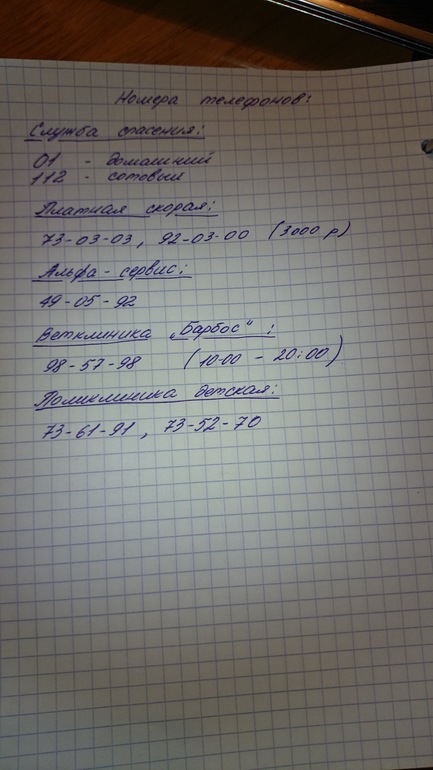 Номера телефонов:
Служба спасения:
01 - домашний
112 - сотовый
Платная скорая:
73-03-03, 92-03-00 (3000 р)
Альфа-сервис:
49-05-92
Ветклиника „Барбос":
98-57-98 (10:00 - 20:00)
Поликлиника детская:
73-61-91, 73-52-70